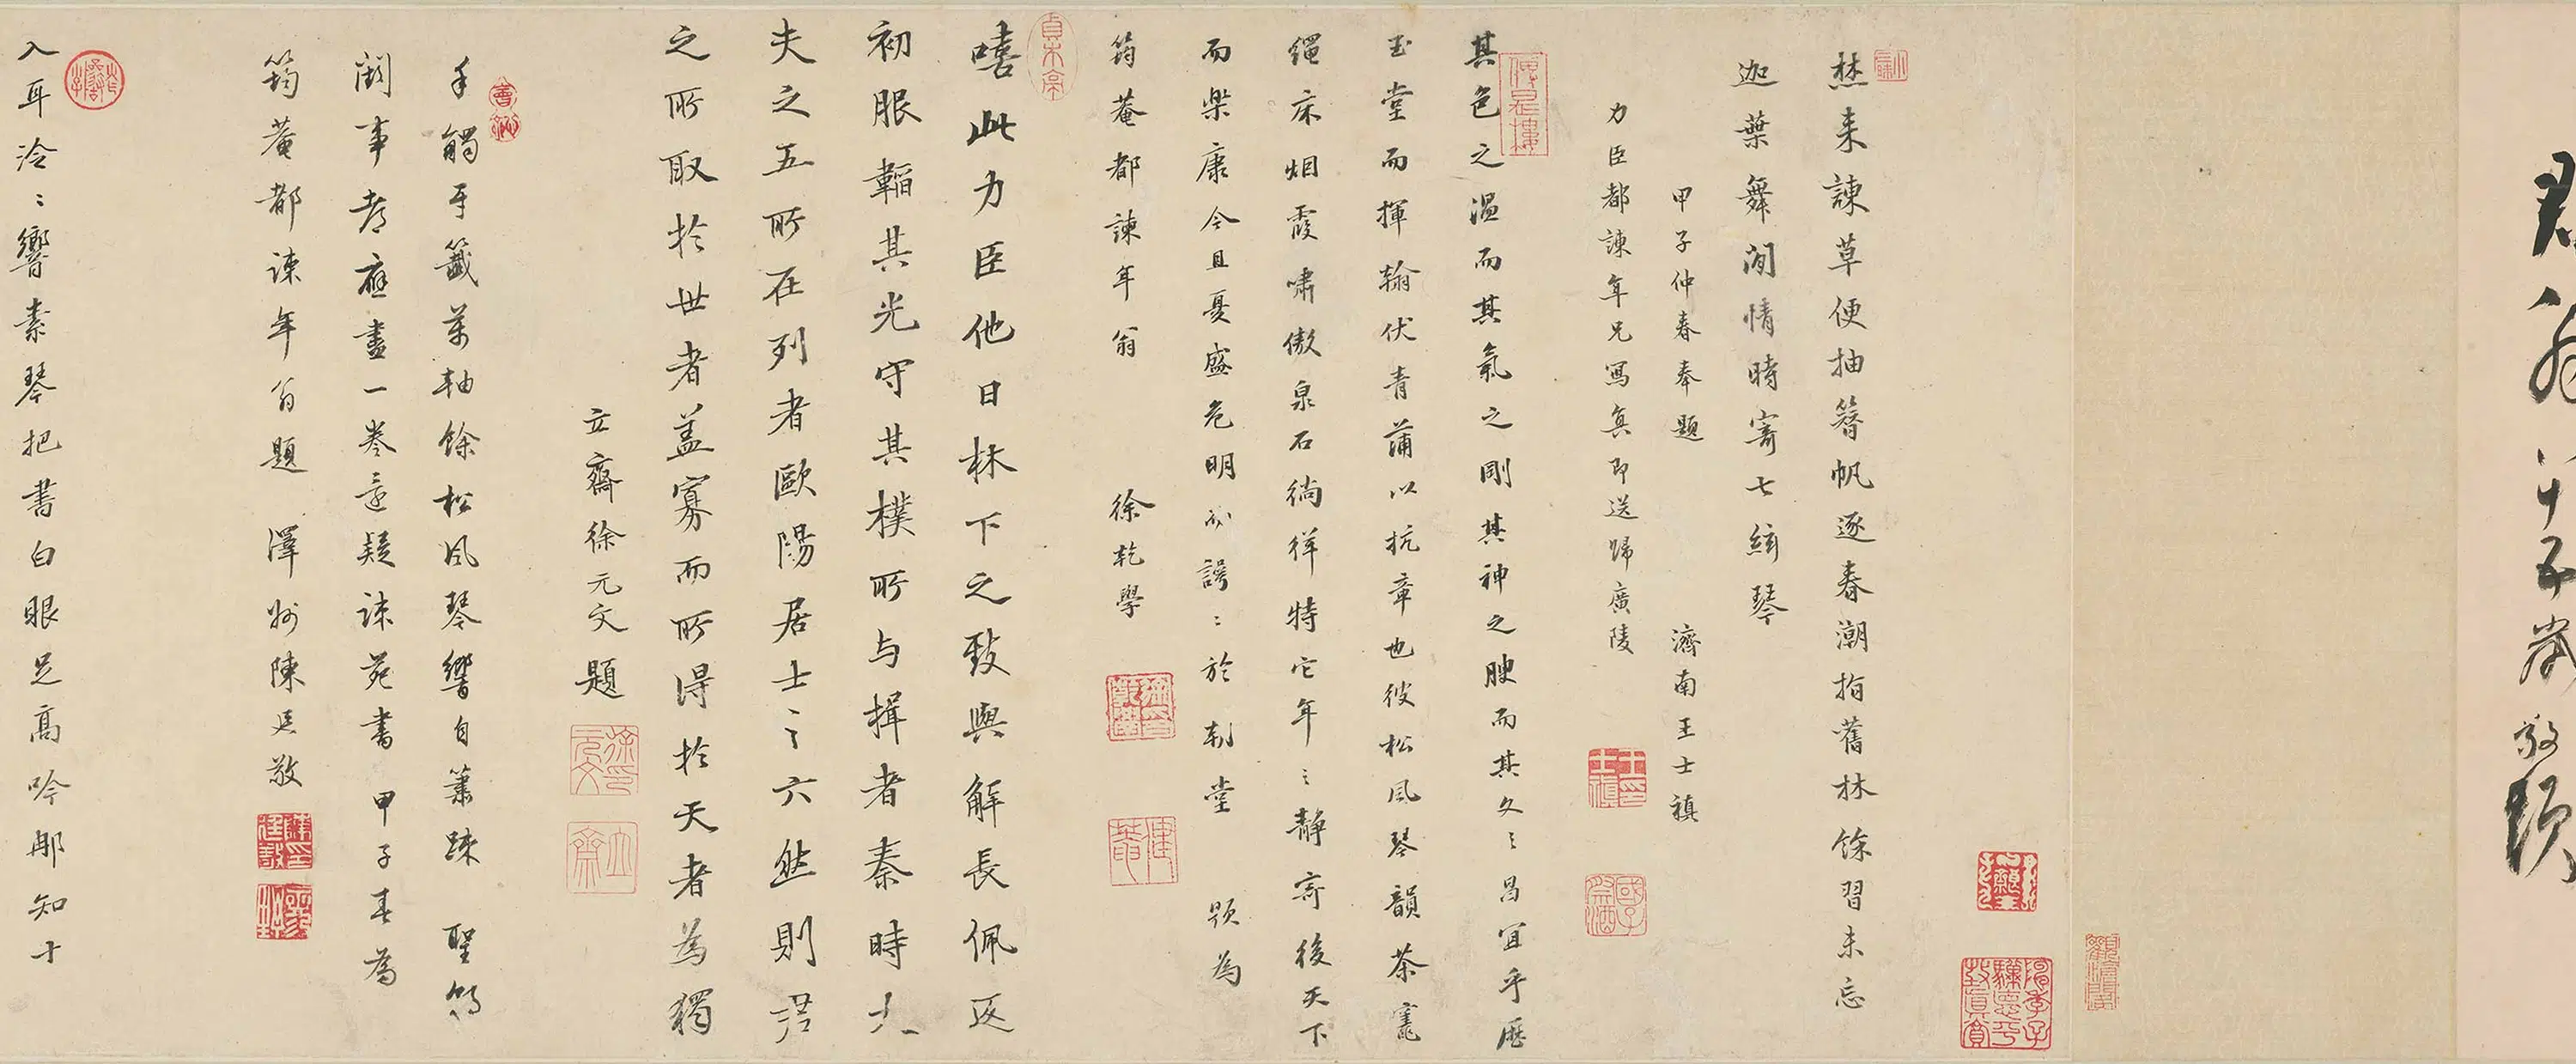 君
敬題
焚来諫草便抽簪帆逐春潮指舊林餘習未忘
迦葉舞閒情時寄七絃琴
甲子仲春奉題
濟南王士禛
力臣都諫年兄寫真即送歸廣陵
其色之溫而其氣之剛其神之腴而其文之昌宜乎歷
玉堂而揮翰伏青蒲以抗章也彼松風琴韻茶竈
繩床烟霞嘯傲泉石徜徉特它年之靜寄後天下
而樂康今且憂盛危明以諤諤於朝堂
題為
筠菴都諫年翁
徐乾學
嘻此力臣他日林下之致與解長佩返
初服韜其光守其樸所与揖者秦時大
夫之五所在列者歐陽居士之六然則君
之所取於世者盖寡而所得於天者為獨
立齋徐元文題
手觸牙籤萬軸餘松風琴響自蕭踈聖
闕事都應盡一卷還疑諫苑書甲子春為
筠菴都諫年翁題
澤州陳廷敬
入耳泠泠響素琴把書白眼足高吟那知十